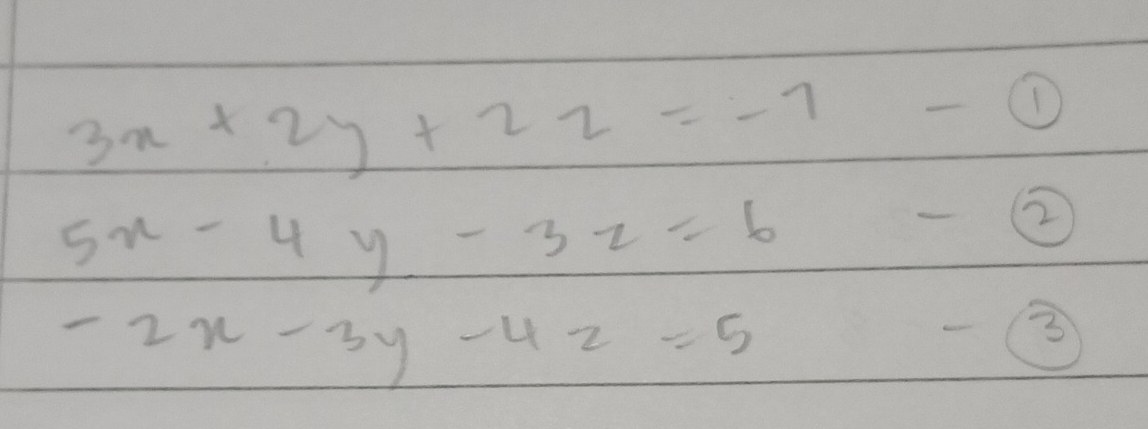 3x + 2y + 2z = -7 - ①
5x - 4y - 3z = 6 - ②
-2x - 3y - 4z = 5 - ③